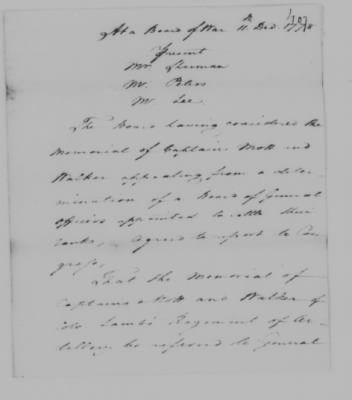 At a Board of War 11. Decr. 1778
Present
Mr. Sherman
Mr. Peters
Mr. Lee
The Board having considered the
Memorial of Captains Mott and
Walker appealing from a deter-
mination of a Board of General
officers appointed to settle their
ranks, Agreed to report to Con-
gress,
That the Memorial of
Captains Mott and Walker of
Colo Lambs Regiment of Ar-
tillery be referred to General